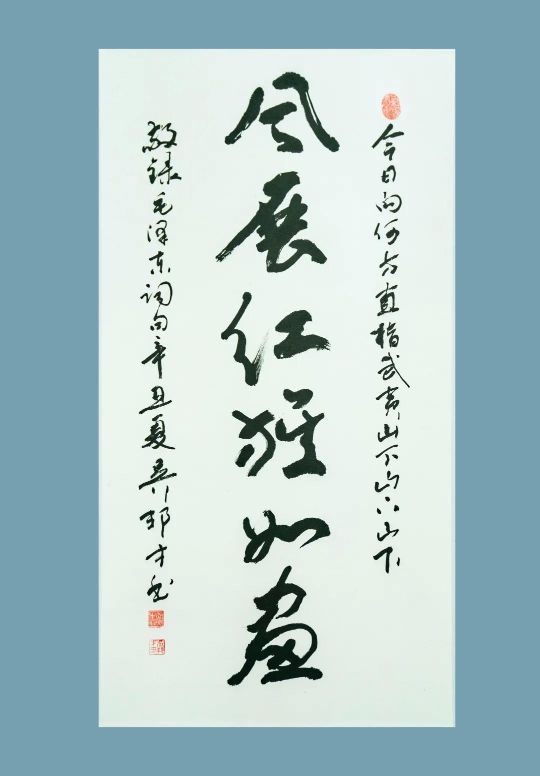 今日向何方直指武夷山下山下山下
风展红旗如畫
敬録毛泽东词句辛丑夏吴邦才书